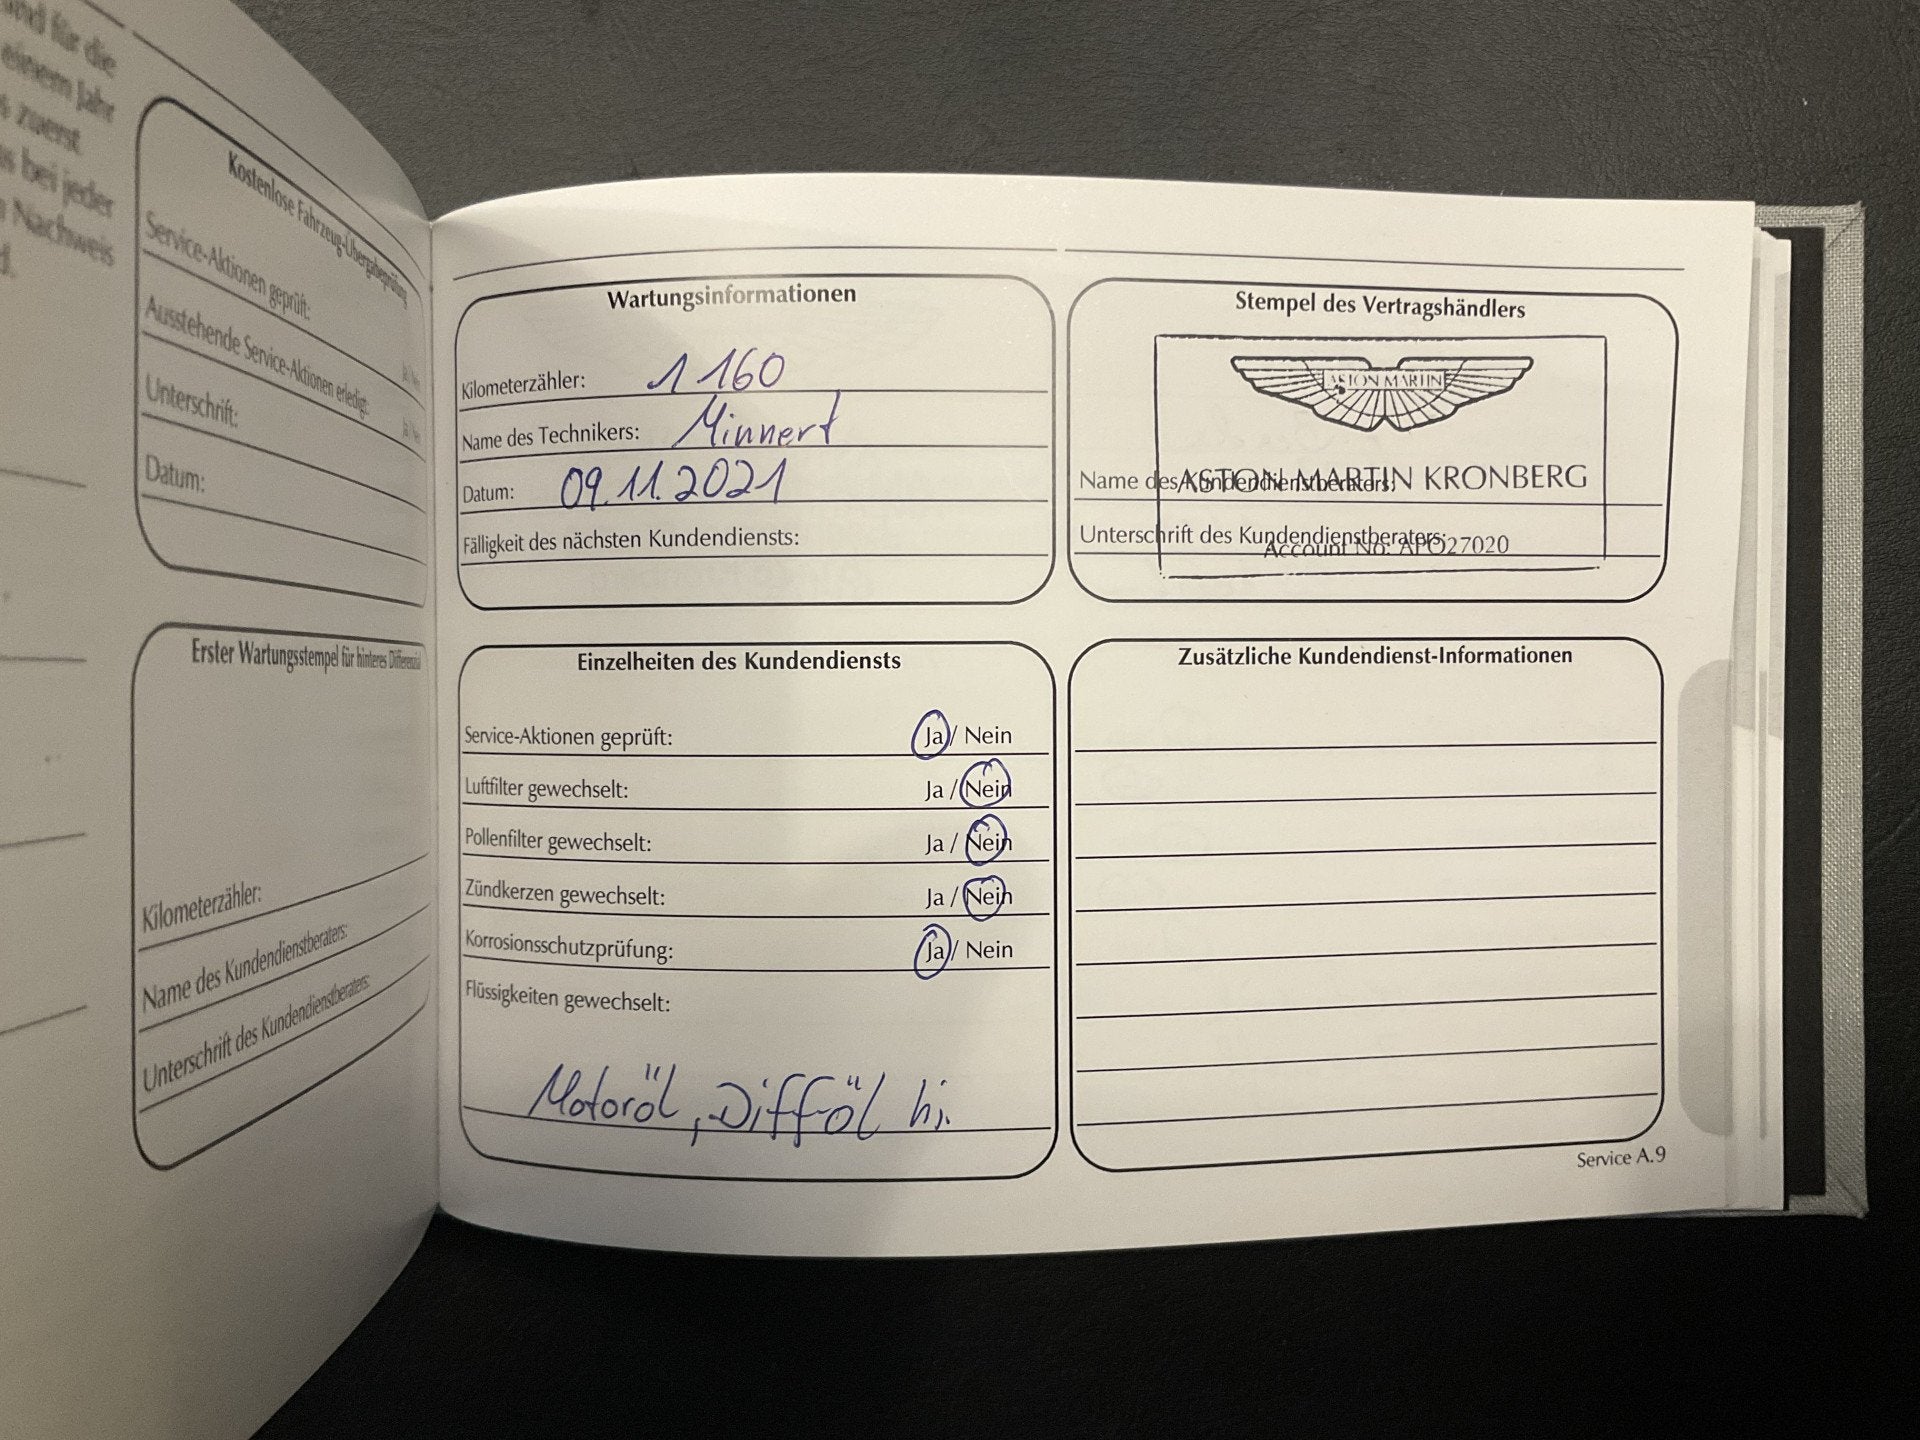 und für die
einem Jahr
zuerst
bei jeder
Nachweis
Kostenlose Fahrzeug-Übergabeprüfung
Service-Aktionen geprüft:
Ja / Nein
Ausstehende Service-Aktionen erledigt:
Ja / Nein
Unterschrift:
Datum:
Erster Wartungsstempel für hinteres Differenzial
Kilometerzähler:
Name des Kundendienstberaters:
Unterschrift des Kundendienstberaters:
Wartungsinformationen
Kilometerzähler: 1 160
Name des Technikers: Minnert
Datum: 09.11.2021
Fälligkeit des nächsten Kundendiensts:
Stempel des Vertragshändlers
ASTON MARTIN
Name des Kundendienstberaters:
ASTON MARTIN KRONBERG
Unterschrift des Kundendienstberaters:
Account No: APO27020
Einzelheiten des Kundendiensts
Service-Aktionen geprüft: Ja / Nein
Luftfilter gewechselt: Ja / Nein
Pollenfilter gewechselt: Ja / Nein
Zündkerzen gewechselt: Ja / Nein
Korrosionsschutzprüfung: Ja / Nein
Flüssigkeiten gewechselt:
Motoröl, Difföl hi.
Zusätzliche Kundendienst-Informationen
Service A.9